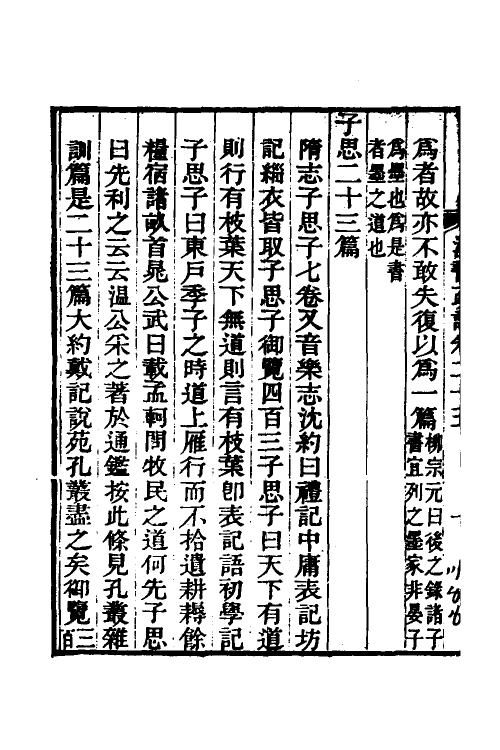 爲者故亦不敢失復以爲一篇柳宗元曰後之錄諸子書宜列之墨家非晏子
爲墨也爲是書者墨之道也
子思二十三篇
隋志子思子七卷又音樂志沈約曰禮記中庸表記坊
記緇衣皆取子思子御覽四百三子思子曰天下有道
則行有枝葉天下無道則言有枝葉卽表記語初學記
子思子曰東戶季子之時道上雁行而不拾遺耕耨餘
糧宿諸畝首晁公武曰載孟軻問牧民之道何先子思
曰先利之云云温公采之著於通鑑按此條見孔叢雜
訓篇是二十三篇大約戴記說苑孔叢盡之矣御覽三百